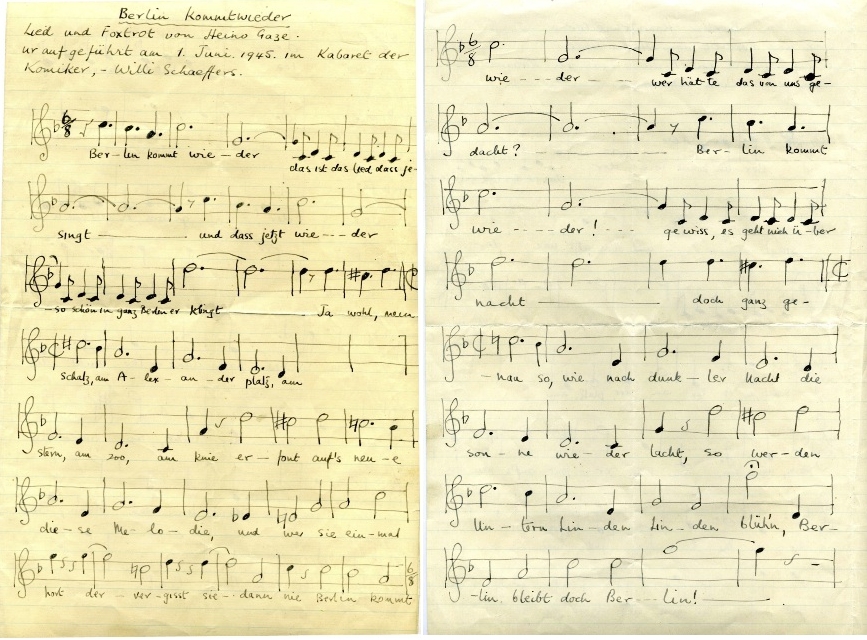 Berlin kommtwieder
Lied und Foxtrot von Heino Gaze.
uraufgeführt am 1. Juni. 1945. im Kabaret der
Komiker, - Willi Schaeffers.
6/8
Ber-lin kommt wie-der das ist das Lied dass je-
singt und dass jetzt wie---der
-so schön in ganz Berlin er klingt Ja wohl, mein
schatz, am A-lex-an-der platz, am
stern, am zoo, am knie er-tönt auf's neu-e
die-se Me-lo-die, und wer sie ein-mal
hört der-ver-gisst sie-dann nie Berlin kommt
6/8
6/8
wie----der---- wer hät-te das von uns ge-
dacht? Ber-lin kommt
wie----der! gewiss, es geht nicht ü-ber
nacht doch ganz ge-
-nau so, wie nach dunk-ler Nacht die
son-ne wie-der lacht, so wer-den
Un-tern Lin-den Lin-den blüh'n, Ber-
-lin bleibt doch Ber---lin!